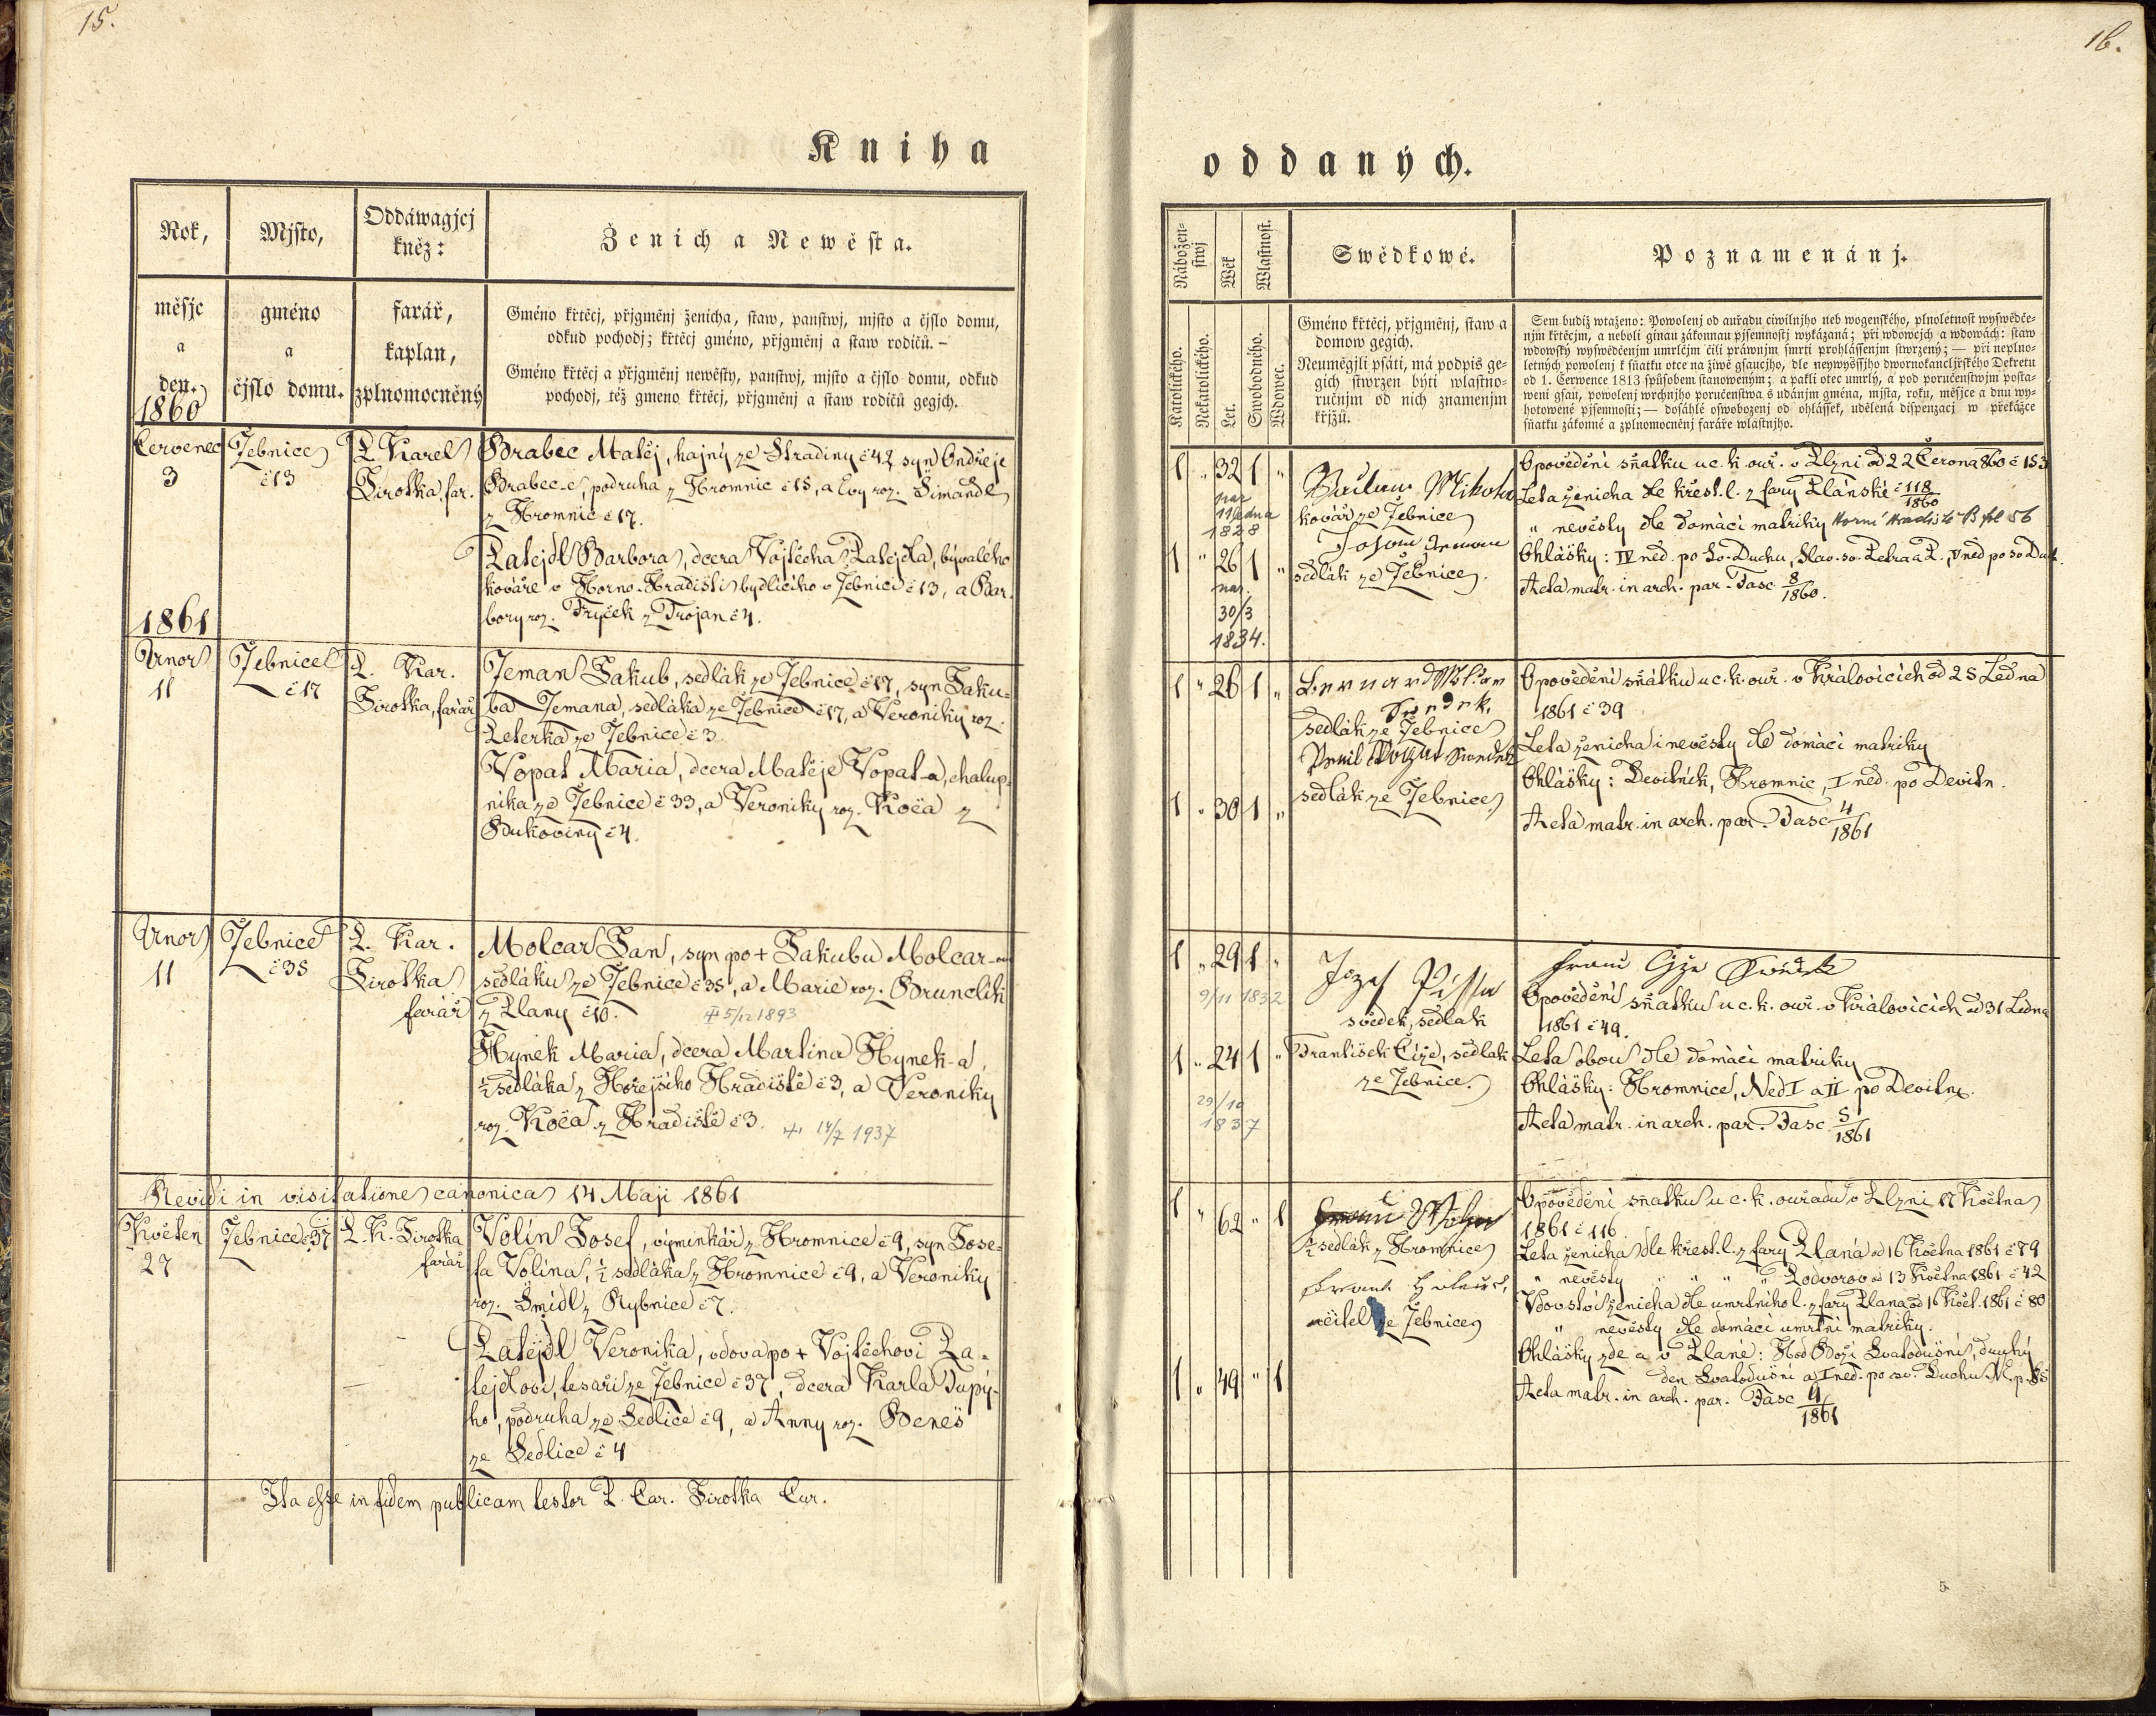 15.
Kniha
Rok,
měsjc
a
den.
1860
Mjsto,
gméno
a
čjslo domu.
Oddáwagjcj
kněz:
farář,
kaplan,
zplnomocněný
Ženich a Newěsta.
Gméno křtěcj, přjgměnj ženicha, staw, panstwj, mjsto a čjslo domu,
odkud pochodj; křtěcj gméno, přjgměnj a staw rodičů. –
Gméno křtěcj a přjgměnj newěsty, panstwj, mjsto a čjslo domu, odkud
pochodj, též gmeno křtěcj, přjgměnj a staw rodičů gegjch.
Červenec
3
Jebnice
č 13
P. Karel
Sirotka, far.
Brabec Matěj, hajný ze Stradiny č 42 syn Ondřeje
Brabec-e, podruha z Hromnic č 15, a Evy roz. Šimandl
z Hromnic č 17.
Patejdl Barbora, dcera Vojtěcha Patejdla, bývalého
kováře v Horno-Hradišti bydlícího v Jebnici č 13, a Bar-
bory roz. Fryček z Trojan č 4.
1861
Unor
11
Jebnice
č 17
P. Kar.
Sirotka, farář
Jeman Jakub, sedlák ze Jebnice č 17, syn Jaku-
ba Jemana, sedláka ze Jebnice č 17, a Veroniky roz.
Peterka ze Jebnice č 3.
Vopat Maria, dcera Matěje Vopat-a, chalup-
níka ze Jebnice č 33, a Veroniky roz. Koča z
Bukoviny č 4.
Unor
11
Jebnice
č 35
P. Kar.
Sirotka
farář
Molcar Jan, syn po + Jakubu Molcar-
sedláku ze Jebnice č 35, a Marie roz. Brunclík
z Plany č 10. + 5/12 1893
Hynek Maria, dcera Martina Hynek-a,
½ sedláka z Hořejšího Hradiště č 3, a Veroniky
roz. Koča z Hradiště č 3. + 14/7 1937
Revidi in visitatione canonica 14 Maji 1861
Květen
27
Jebnice č 37
P. K. Sirotka
farář
Volín Josef, výminkář z Hromnice č 9, syn Jose-
fa Volína, ½ sedláka z Hromnice č 9, a Veroniky
roz. Šmídl z Rybnice č 7.
Patejdl Veronika, vdova po + Vojtěchovi Pa-
tejdlovi, tesaři ze Jebnice č 37, dcera Karla Tupý-
ho, podruha ze Sedlice č 9, a Anny roz. Beneš
ze Sedlice č 4
Ita esse in fidem publicam testor P. Car. Sirotka Cur.
16.
oddaných.
Nábožen-
stwj
Katolického.
Nekatolického.
Wěk
Let.
Wlastnost.
Swobodného.
Wdowec.
Swědkowé.
Gméno křtěcj, přjgměnj, staw a
domow gegich.
Neuměgjli psáti, má podpis ge-
gich stwrzen býti wlastno-
ručnjm od nich znamenjm
křjžů.
Poznamenánj.
Sem budiž wtaženo: Powolenj od auřadu ciwilnjho neb wogenského, plnoletnost wyswědče-
njm křtěcjm, a neboli ginau zákonnau pjsemnostj wykázaná; při wdowcjch a wdowách: staw
wdowský wyswědčenjm umrlčjm čili práwnjm smrti prohlássenjm stwrzený; — při neplno-
letných powolenj k sňatku otce na žiwě gsaucjho, dle neywyššjho dwornokancljřského Dekretu
od 1. Čerwence 1813 spůsobem stanoweným; a pakli otec umrlý, a pod poručenstwjm posta-
weni gsau, powolenj wrchnjho poručenstwa s udánjm gména, mjsta, roku, měsjce a dnu wy-
hotowené pjsemnosti; — dosáhlé oswobozenj od ohlášek, udělená dispenzacj w překážce
sňatku zákonné a zplnomocněnj faráře wlastnjho.
1 „ 32 1 „
nar
11 ledna
1828
1 „ 26 1 „
nar.
30/3
1834.
Mikota
kovář ze Jebnice
sedlák ze Jebnice.
Opovědění sňatku u c. k. ouř. v Plzni od 22 Června 860 č 153
Leta ženicha dle křest. l. z fary Plánské č 118/1860
„ nevěsty dle domácí matriky Horní Hradiště B fol 56
Ohlášky: IV ned. po sv. Duchu, Slav. sv. Petra a P., V ned po sv Duch.
Acta matr. in arch. par. Fasc 8/1860.
1 „ 26 1 „
1 „ 30 1 „
Bernard
sedlák ze Jebnice
sedlák ze Jebnice
Opovědění sňatku u c. k. ouř. v Královicích od 25 Ledna
1861 č 39
Leta ženicha i nevěsty dle domácí matriky
Ohlášky: Devítník, Hromnic, I ned. po Devítn.
Acta matr. in arch. par. Fasc 4/1861
1 „ 29 1 „
9/11 1832
1 „ 24 1 „
29/10
1837
Jozef
svědek, sedlak
František Číže, sedlak
ze Jebnice.
Opovědění sňatku u c. k. ouř. v Královicích od 31 Ledna
1861 č 49.
Leta obou dle domácí matriky
Ohlášky: Hromnice, Ned I a II po Devítn.
Acta matr. in arch. par. Fasc 5/1861
1 „ 62 „ 1
1 „ 49 „ 1
½ sedlák z Hromnice
učitel ze Jebnice
Opovědění sňatku u c. k. ouřadu v Plzni 17 Května
1861 č 116.
Leta ženicha dle křest. l. z fary Planá od 16 Května 1861 č 79
„ nevěsty „ „ „ „ Podvorov od 13 Května 1861 č 42
Vdovství ženicha dle umrtního l. z fary Plana od 16 Květ. 1861 č 80
„ nevěsty dle domácí umrtní matriky.
Ohlášky zde a v Plané: Hod Boží Svatodušní, druhý
den Svatodušní a I ned. po sv. Duchu
Acta matr. in arch. par. Fasc 9/1861
5